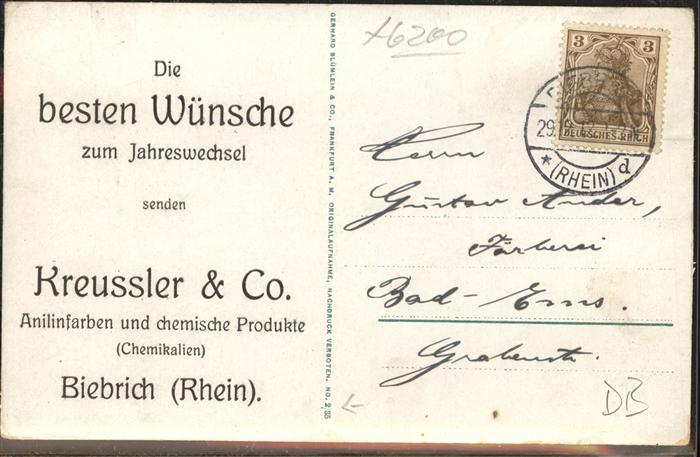 Die
besten Wünsche
zum Jahreswechsel
senden
Kreussler & Co.
Anilinfarben und chemische Produkte
(Chemikalien)
Biebrich (Rhein).
GERHARD BLÜMLEIN & CO., FRANKFURT A. M. ORIGINALAUFNAHME, NACHDRUCK VERBOTEN. NO. 2,35
6200
3 3
DEUTSCHES REICH
29.
* (RHEIN) d
Herrn
Gustav
Färberei
Bad-Ems.
Grabenstr.
DB